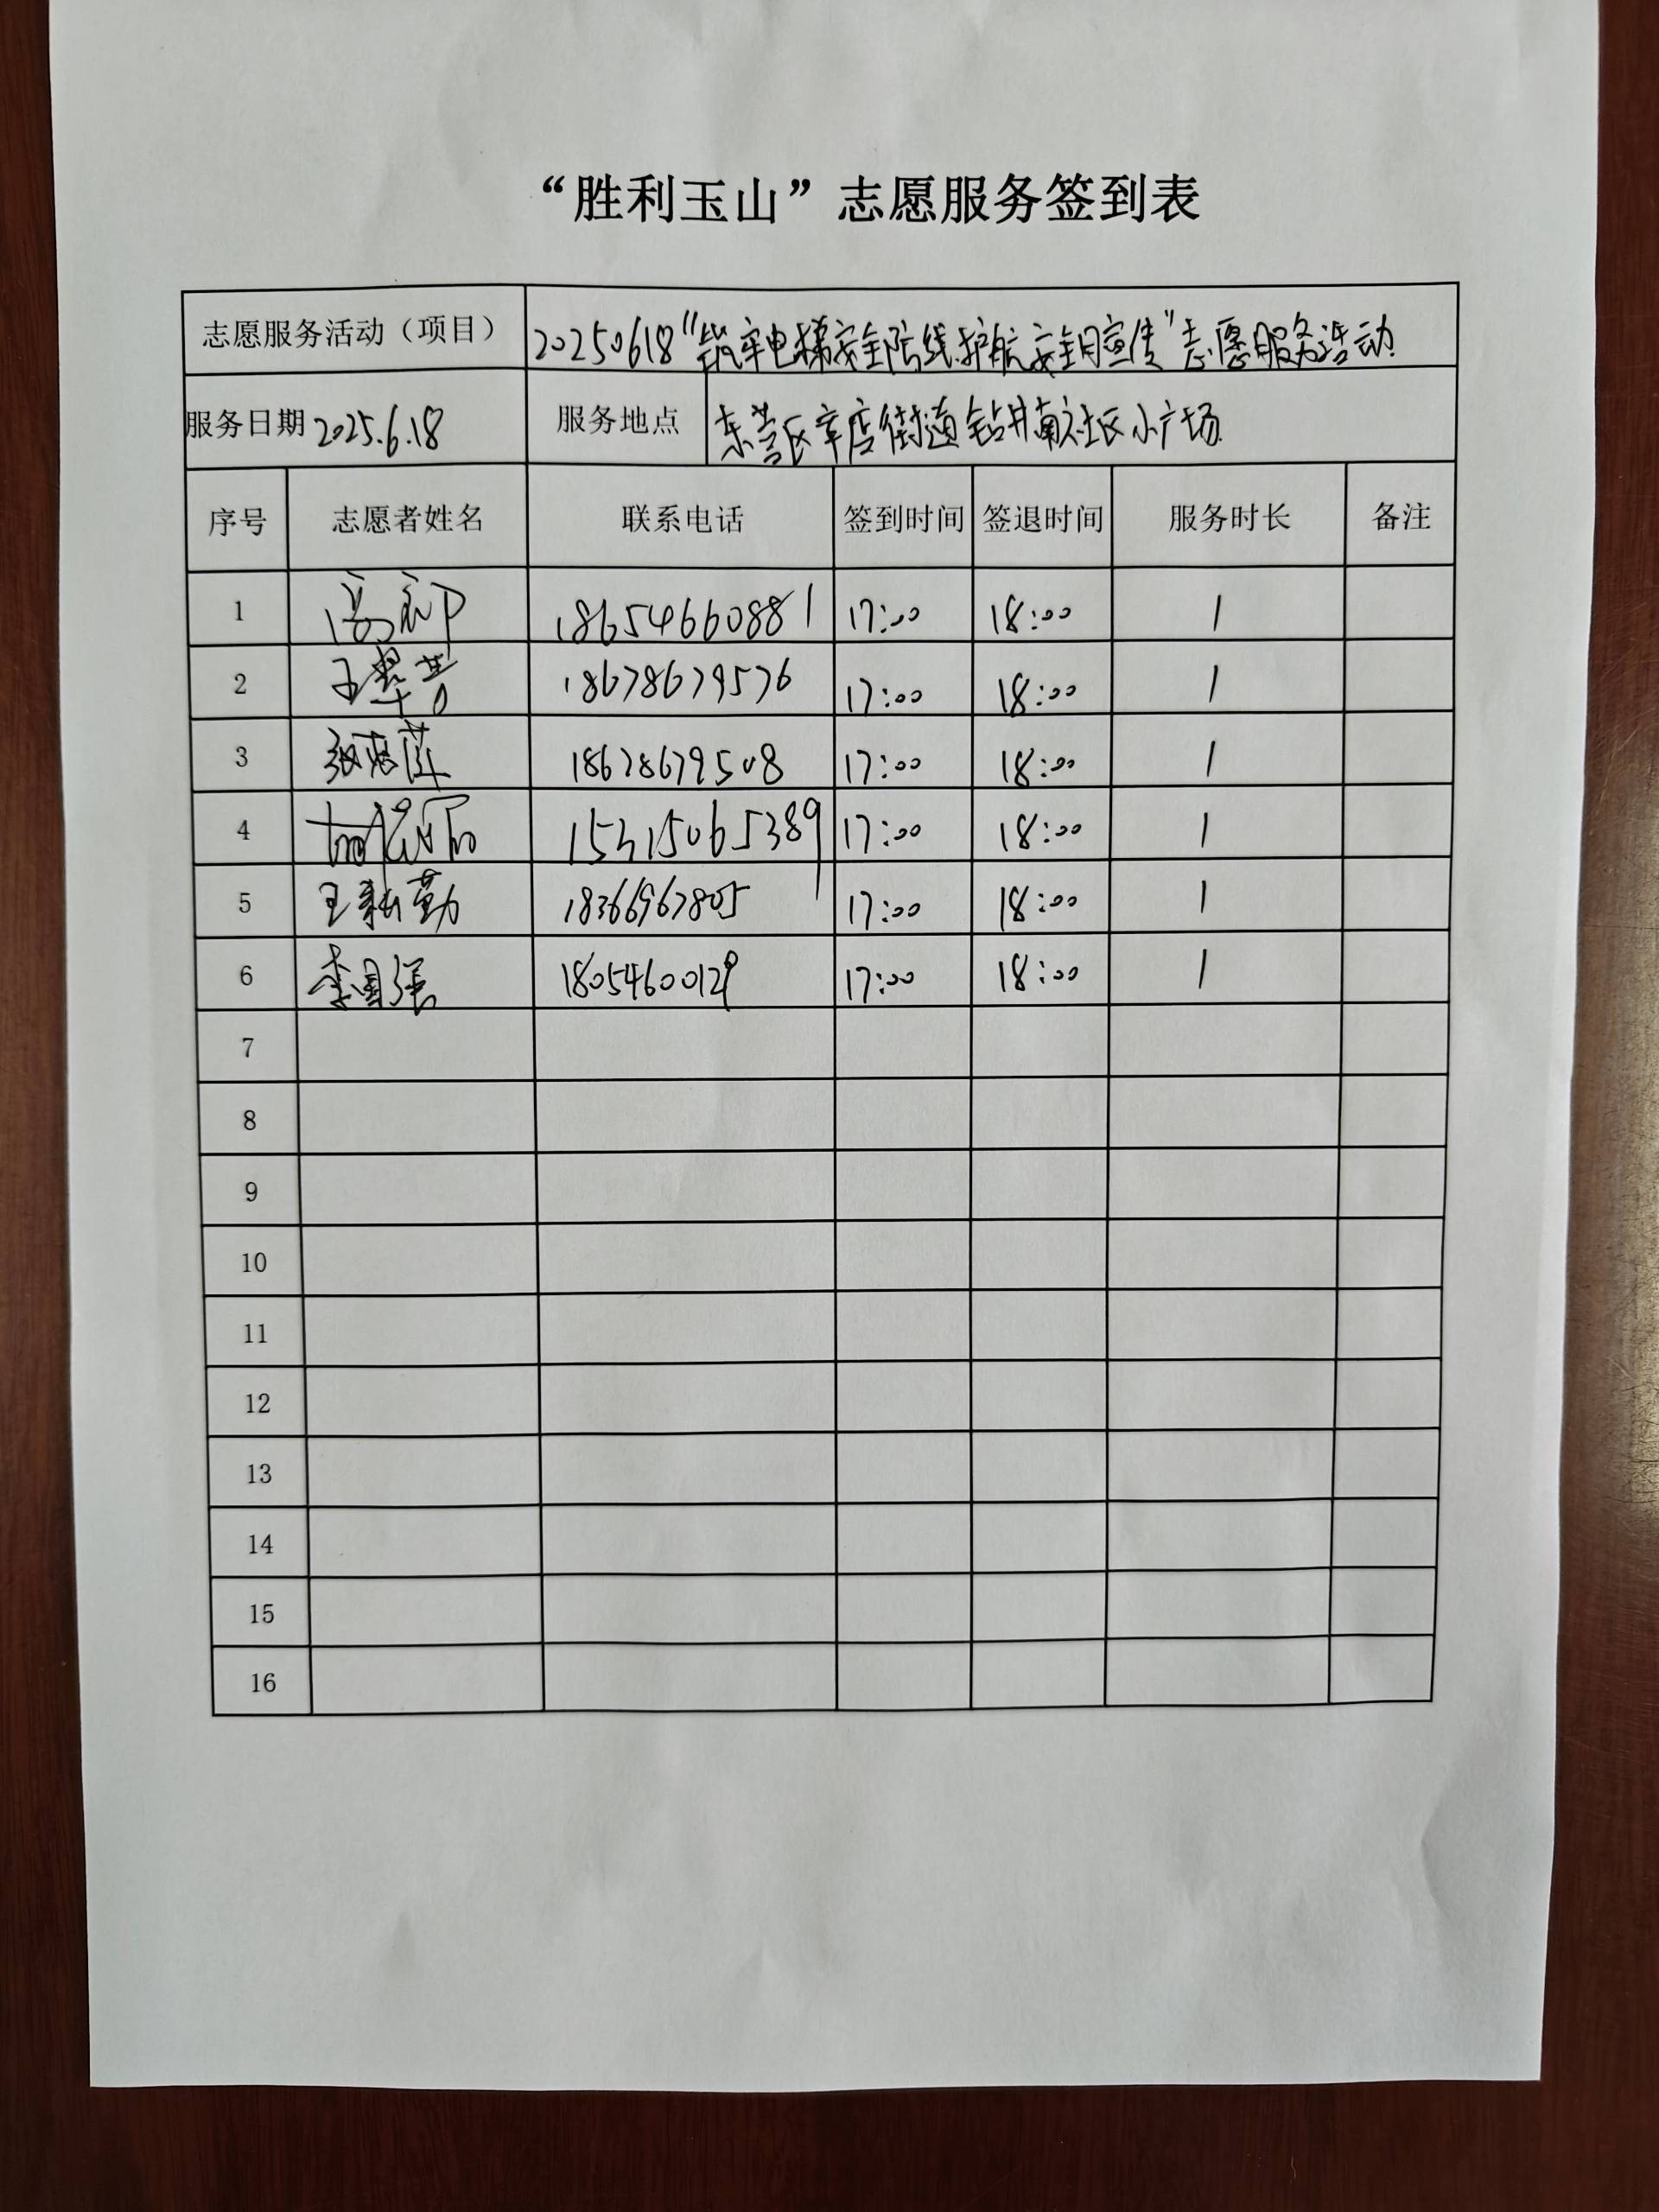 “胜利玉山”志愿服务签到表
志愿服务活动（项目） 20250618“筑牢电梯安全防线,护航安全月宣传”志愿服务活动
服务日期 2025.6.18 服务地点 东营区辛店街道钻井南社区小广场
序号 志愿者姓名 联系电话 签到时间 签退时间 服务时长 备注
1 18654660881 17:00 18:00 1
2 王翠芳 18678679576 17:00 18:00 1
3 18678679508 17:00 18:00 1
4 15315065389 17:00 18:00 1
5 王耕勤 18366967805 17:00 18:00 1
6 李国强 18054600129 17:00 18:00 1
7
8
9
10
11
12
13
14
15
16